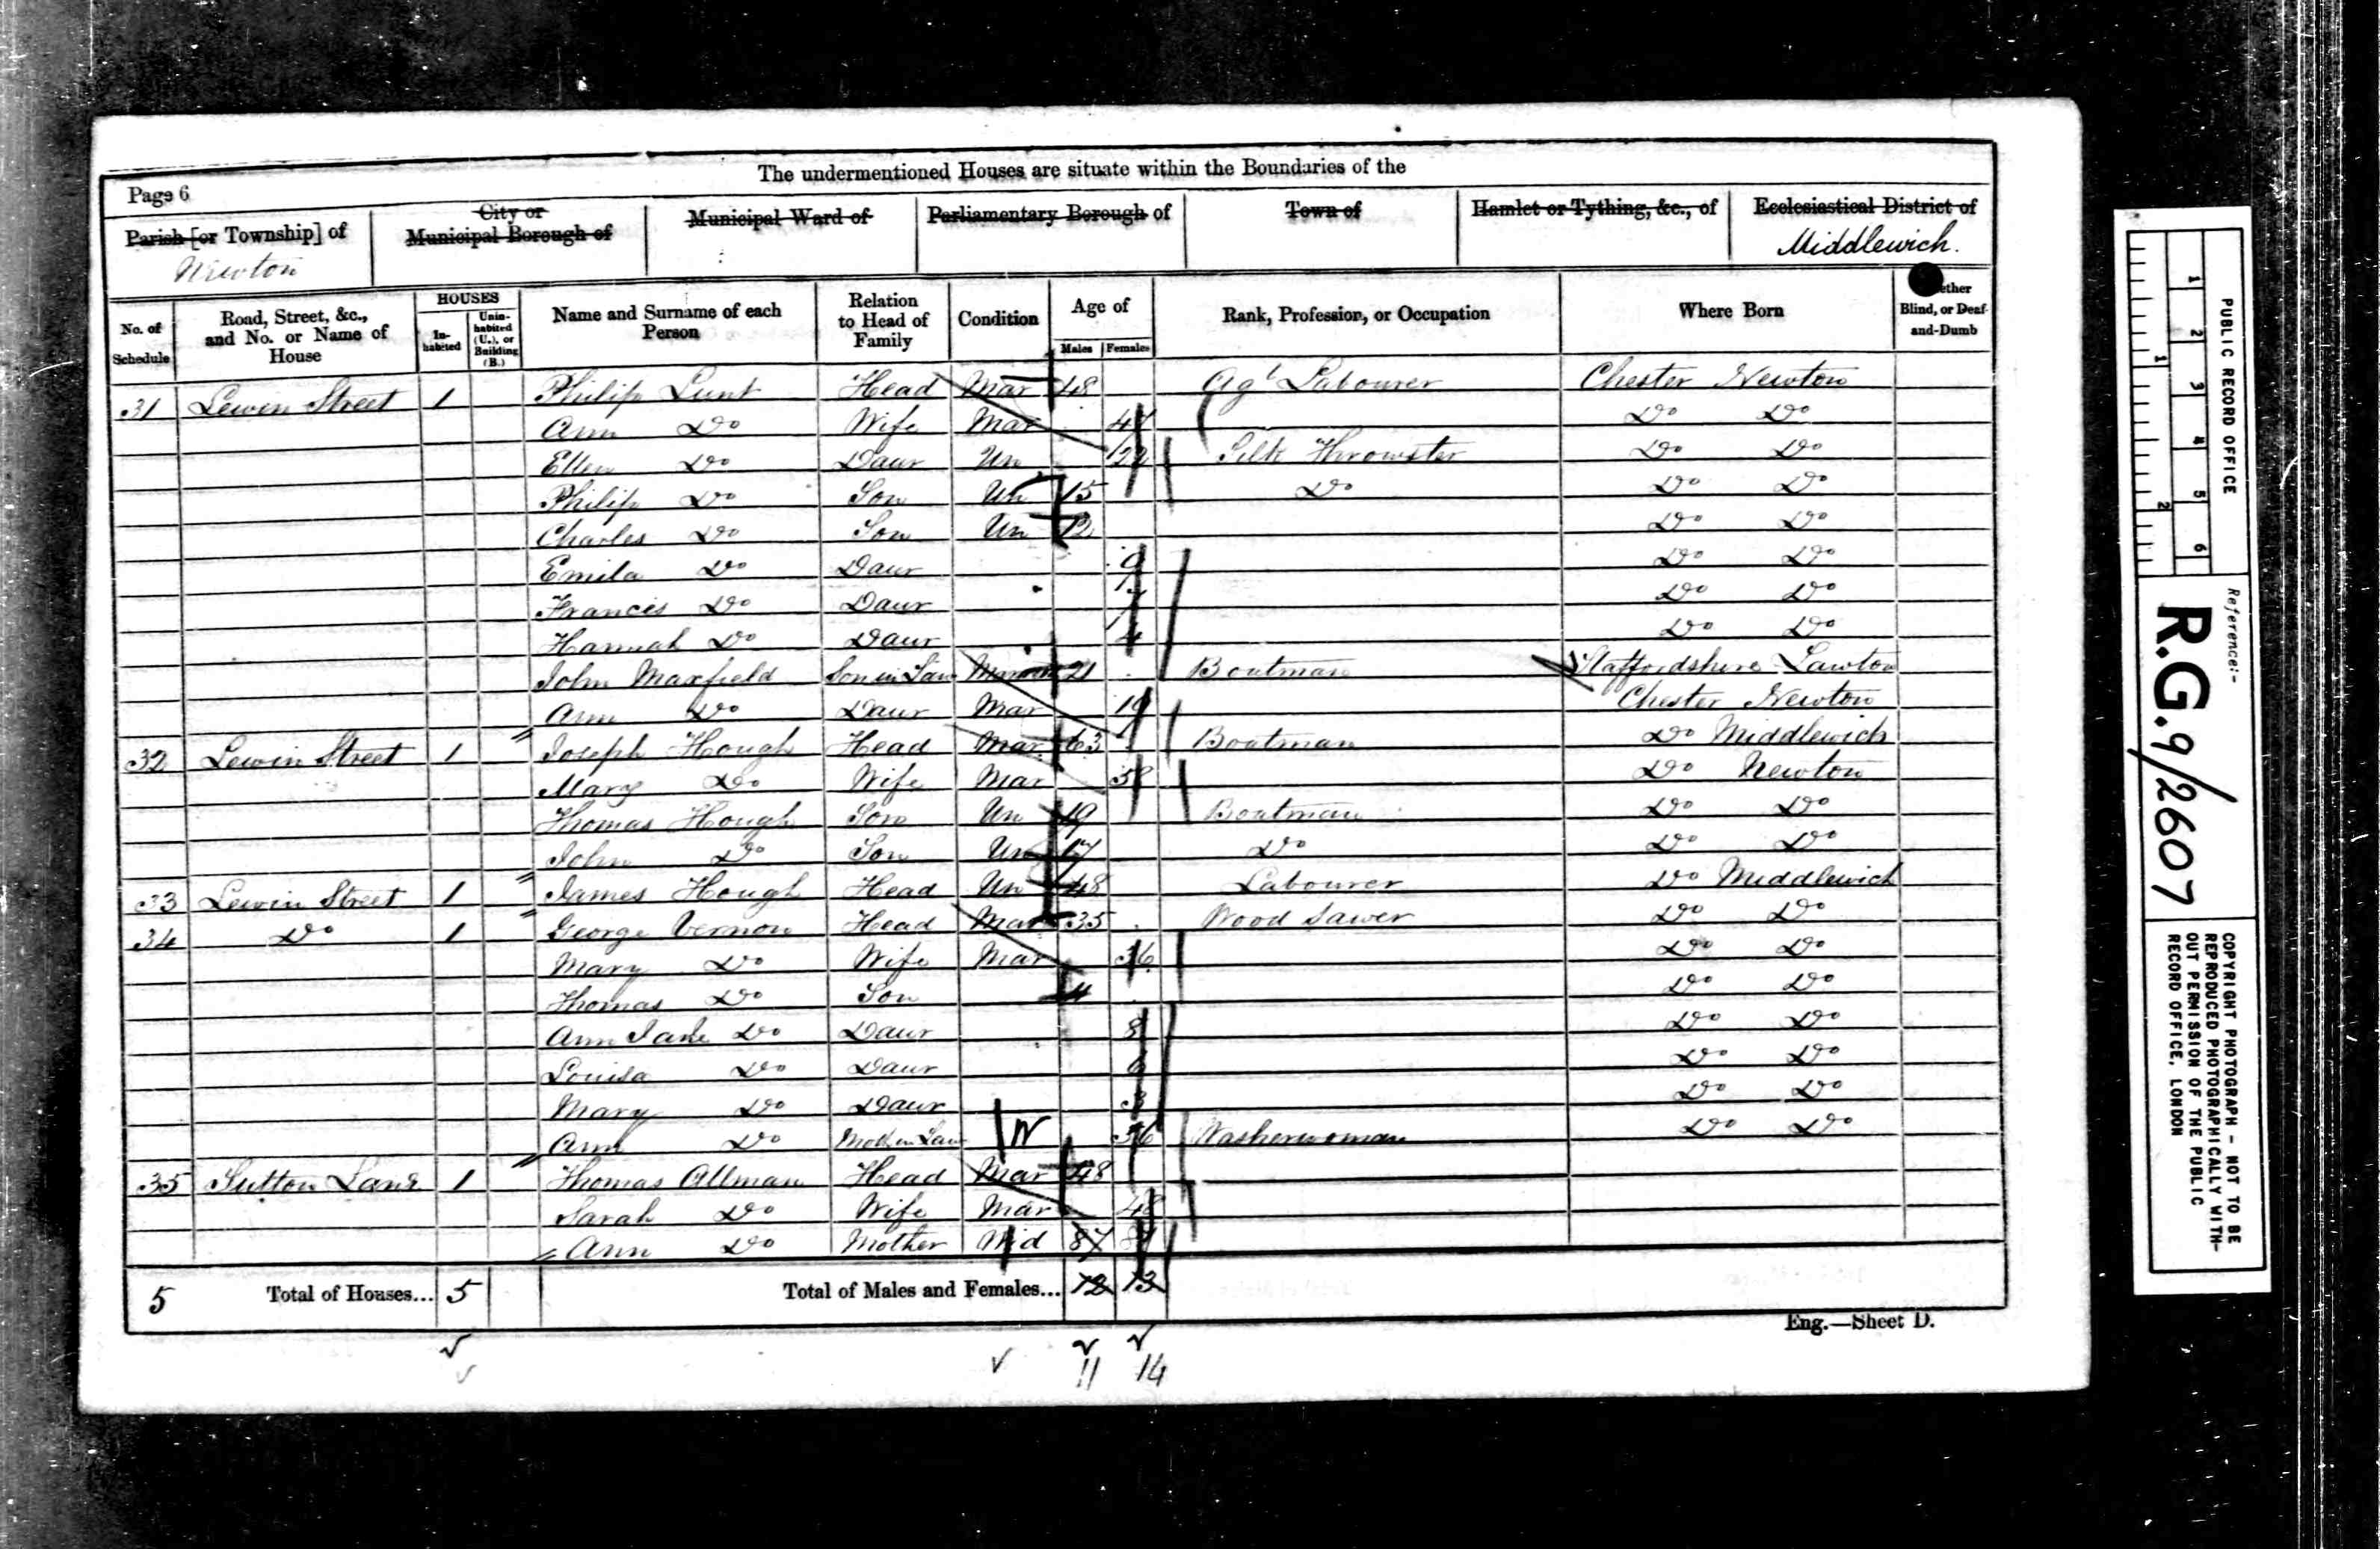 The undermentioned Houses are situate within the Boundaries of the
Page 6
Parish [or Township] of
Newton
City or
Municipal Borough of
Municipal Ward of
Parliamentary Borough of
Town of
Hamlet or Tything, &c., of
Ecclesiastical District of
Middlewich.
No. of Schedule
Road, Street, &c., and No. or Name of House
HOUSES
In-habited
Unin-habited (U.), or Building (B.)
Name and Surname of each Person
Relation to Head of Family
Condition
Age of
Males Females
Rank, Profession, or Occupation
Where Born
ether Blind, or Deaf-and-Dumb
31 Lewin Street 1 Philip Lunt Head Mar 48 Agl Labourer Chester Newton
Ann Do Wife Mar 47 Do Do
Ellen Do Daur Un 22 Silk Throwster Do Do
Philip Do Son Un 15 Do Do Do
Charles Do Son Un 12 Do Do
Emila Do Daur 9 Do Do
Francis Do Daur 7 Do Do
Hannah Do Daur 4 Do Do
John Maxfield Son in Law 21 Boatman Staffordshire Lawton
Ann Do Daur Mar 19 Chester Newton
32 Lewin Street 1 Joseph Hough Head Mar 63 Boatman Do Middlewich
Mary Do Wife Mar 58 Do Newton
Thomas Hough Son Un 19 Boatman Do Do
John Do Son Un 17 Do Do Do
33 Lewin Street 1 James Hough Head Un 48 Labourer Do Middlewich
34 Do 1 George Vernon Head Mar 35 Wood Sawer Do Do
Mary Do Wife Mar 36 Do Do
Thomas Do Son 4 Do Do
Ann Jane Do Daur 8 Do Do
Louisa Do Daur 6 Do Do
Mary Do Daur 3 Do Do
Ann Do Moth in Law W 56 Washerwoman Do Do
35 Sutton Lane 1 Thomas Allman Head Mar 48
Sarah Do Wife Mar 48
Ann Do Mother Wid 87
5 Total of Houses... 5 Total of Males and Females... 12 13
Eng.—Sheet D.
11 14
PUBLIC RECORD OFFICE
1 2 3 4 5 6
1 2
Reference:-
R.G. 9/2607
COPYRIGHT PHOTOGRAPH - NOT TO BE
REPRODUCED PHOTOGRAPHICALLY WITH-
OUT PERMISSION OF THE PUBLIC
RECORD OFFICE, LONDON